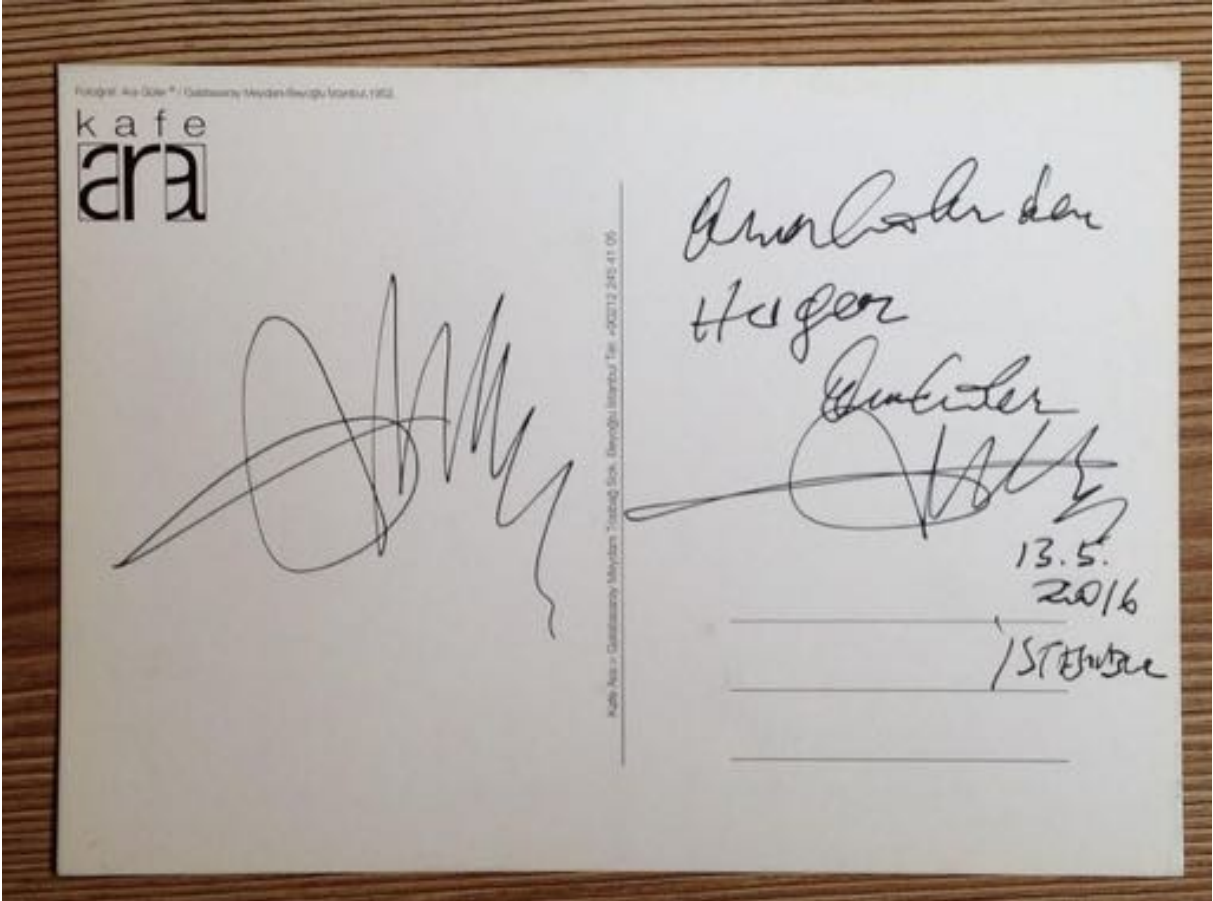 Fotoğraf: Ara Güler © / Galatasaray Meydanı Beyoğlu İstanbul, 1952.
kafe
ara
Kafe Ara > Galatasaray Meydanı Tosbağ Sok. Beyoğlu İstanbul Tel: +90212 245 41 05
Ara Güler
13.5.
2016
İSTANBUL